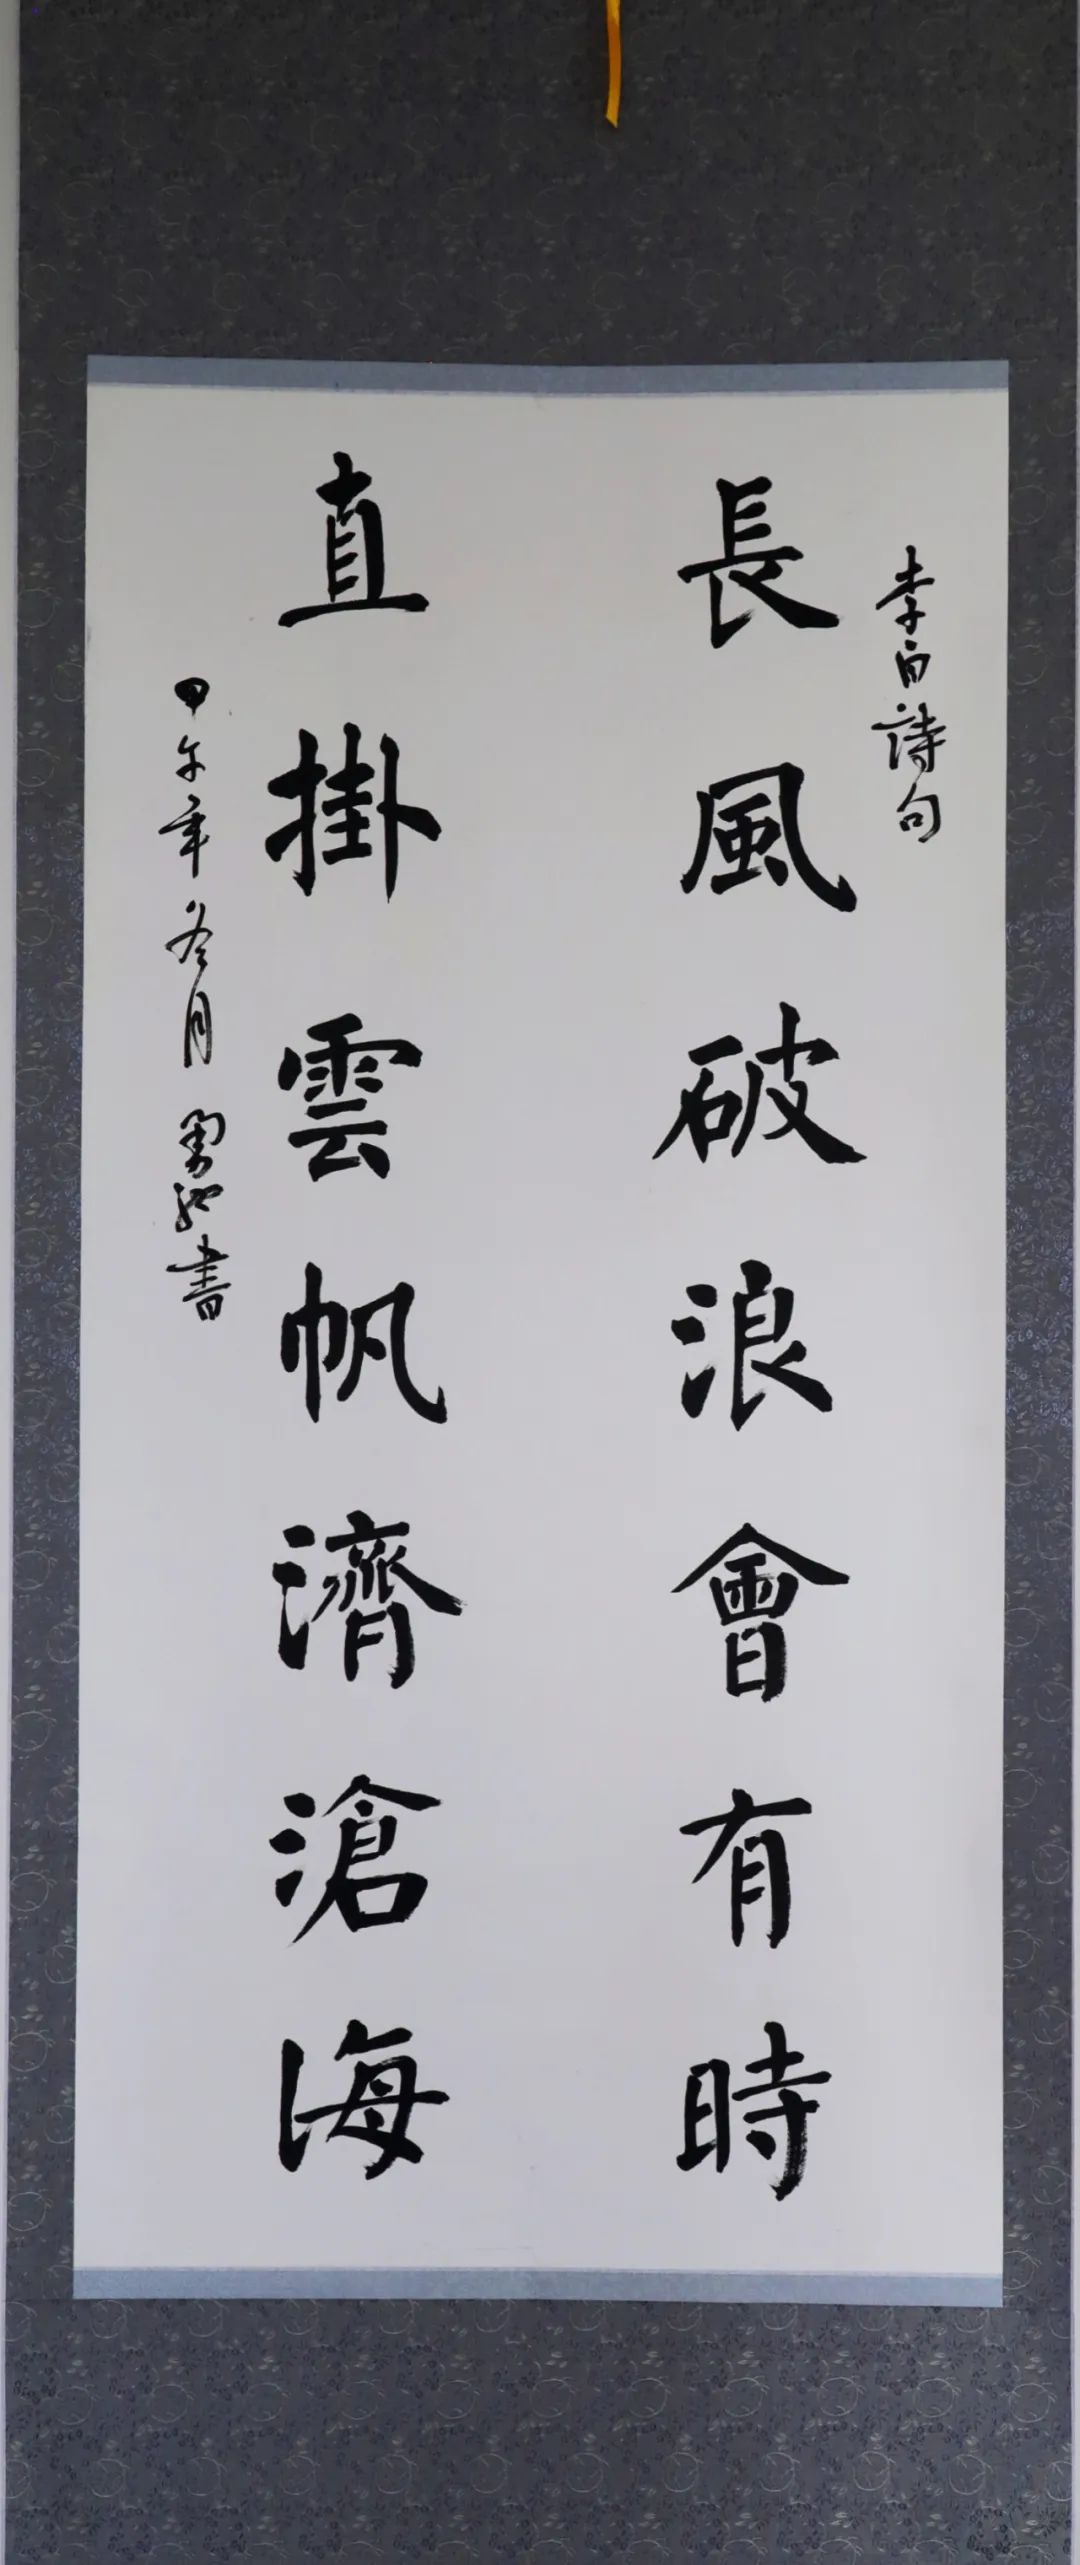 李白詩句
長風破浪會有時
直掛雲帆濟滄海
甲午年冬月 書